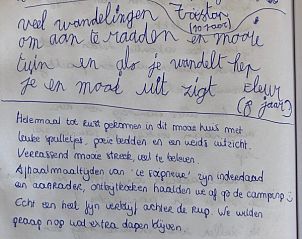 veel wandelingen Tristan
(10 jaar)
om aan te radden en mooie
tuin en als je wandelt heb
je en mooi uit zigt Eleur
(8 jaar)
Helemaal tot rust gekomen in dit mooie huis met
leuke spulletjes, goeie bedden en een weids uitzicht.
Verrassend mooie streek, veel te beleven.
Afhaalmaaltijden van 'le capneue' zijn inderdaad
een aanrader, ontbijtkoeken haalden we af op de camping
Echt een heel fijn verblijf achter de rug. We wilden
graag nog wat extra dagen blijven.